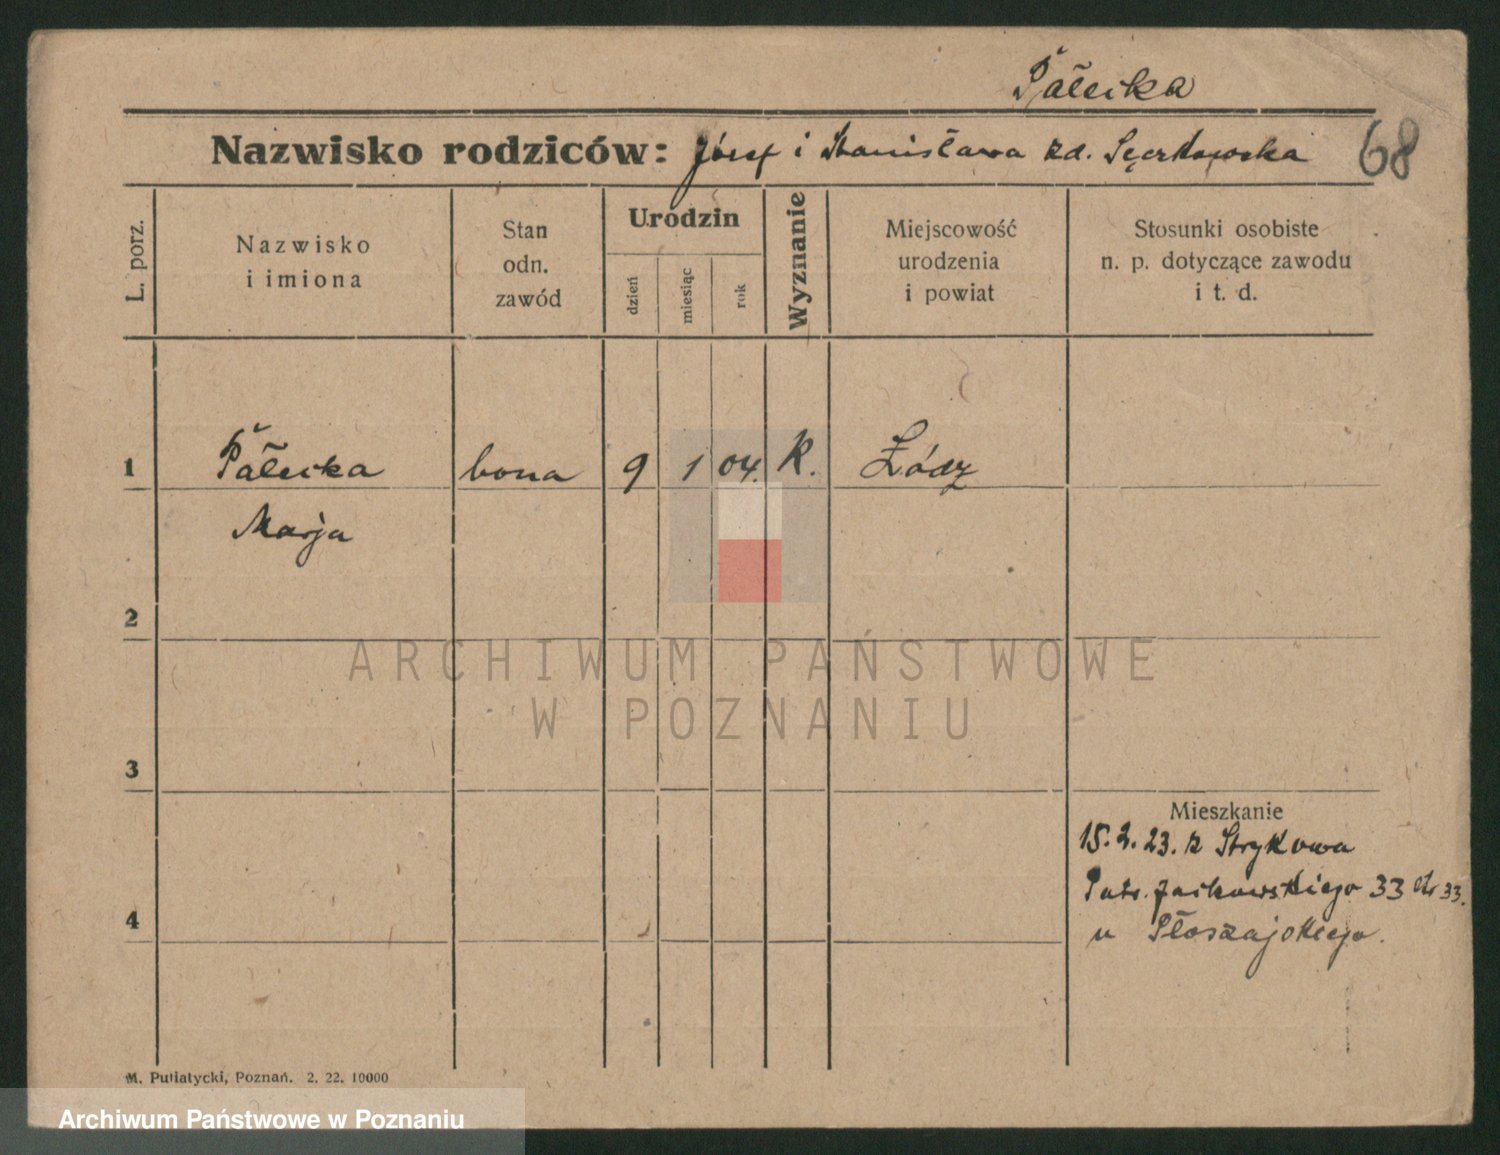 Pałecka
Nazwisko rodziców: Józef i Stanisława zd.
68
L. porz.
Nazwisko
i imiona
Stan
odn.
zawód
Urodzin
dzień
miesiąc
rok
Wyznanie
Miejscowość
urodzenia
i powiat
Stosunki osobiste
n. p. dotyczące zawodu
i t. d.
1 Pałecka bona 9 1 04. K. Łódz
Marja
2
ARCHIWUM PAŃSTWOWE
W POZNANIU
3
Mieszkanie
15. 2. 23. z Strykowa
Jackowskiego 33 33.
4
u Płoszajskiego.
M. Putiatycki, Poznań. 2. 22. 10000
Archiwum Państwowe w Poznaniu